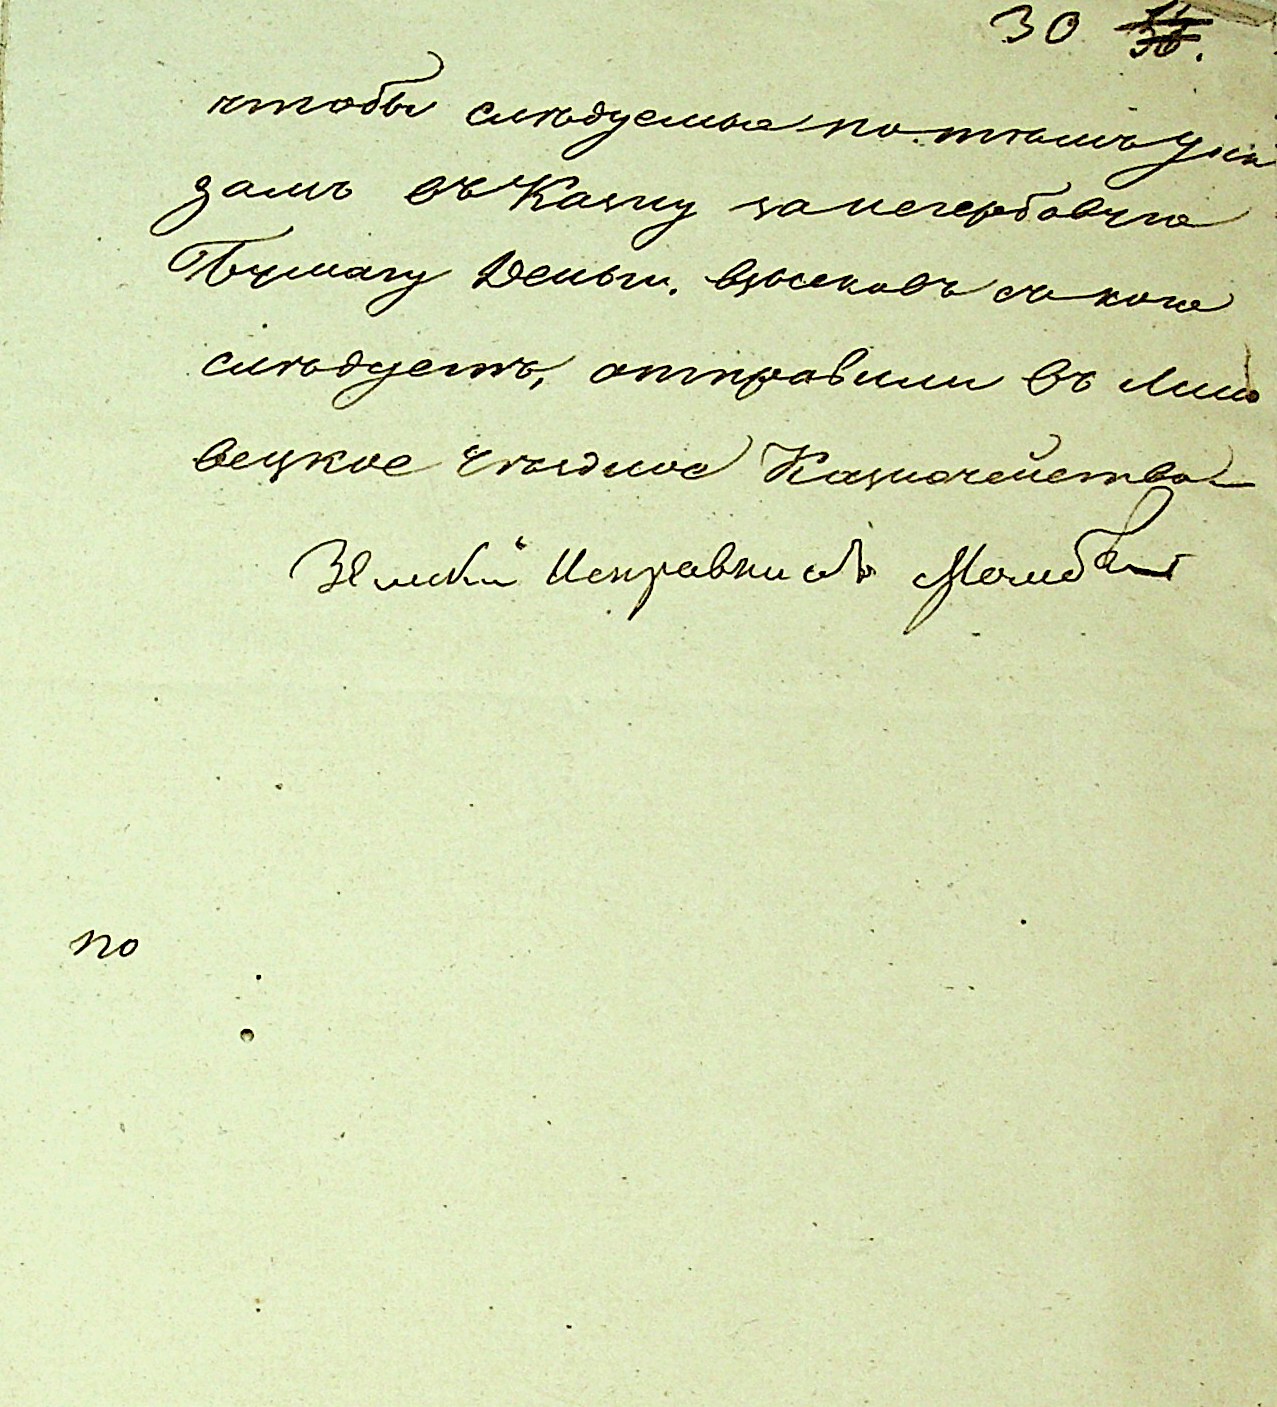 30
чтобы слѣдуемые по тѣмъ Ука
замъ въ Казну за негербовую
Бумагу Деньги, взыскавъ съ кого
слѣдуетъ, отправили въ Липо
вецкое Уѣздное Казначейство
Земскій Исправникъ
по